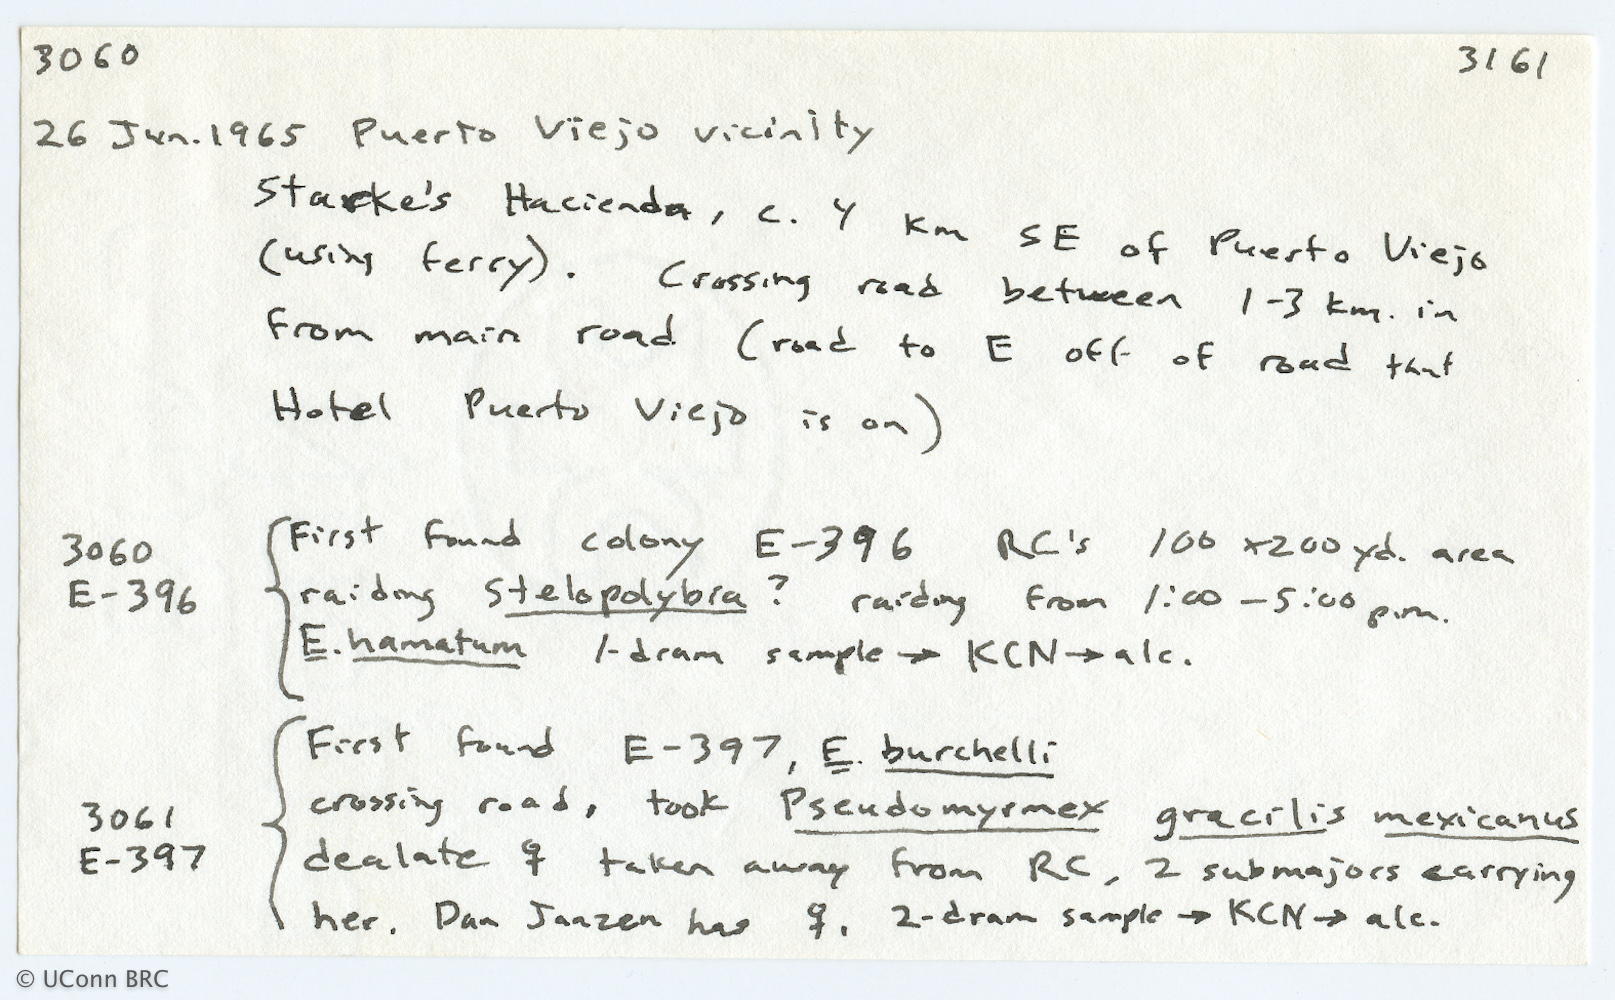 3060 3161
26 Jun. 1965 Puerto Viejo vicinity
Starke's Hacienda, c. 4 km SE of Puerto Viejo
(using ferry). Crossing road between 1-3 km. in
from main road (road to E off of road that
Hotel Puerto Viejo is on)
3060 First found colony E-396 RC's 100 x 200 yd. area
E-396 raiding Stelopolybia? raiding from 1:00 - 5:00 p.m.
E. hamatum 1-dram sample → KCN → alc.
First found E-397, E. burchelli
3061 crossing road, took Pseudomyrmex gracilis mexicanus
E-397 dealate ♀ taken away from RC, 2 submajors carrying
her. Dan Janzen has ♀. 2-dram sample → KCN → alc.
© UConn BRC